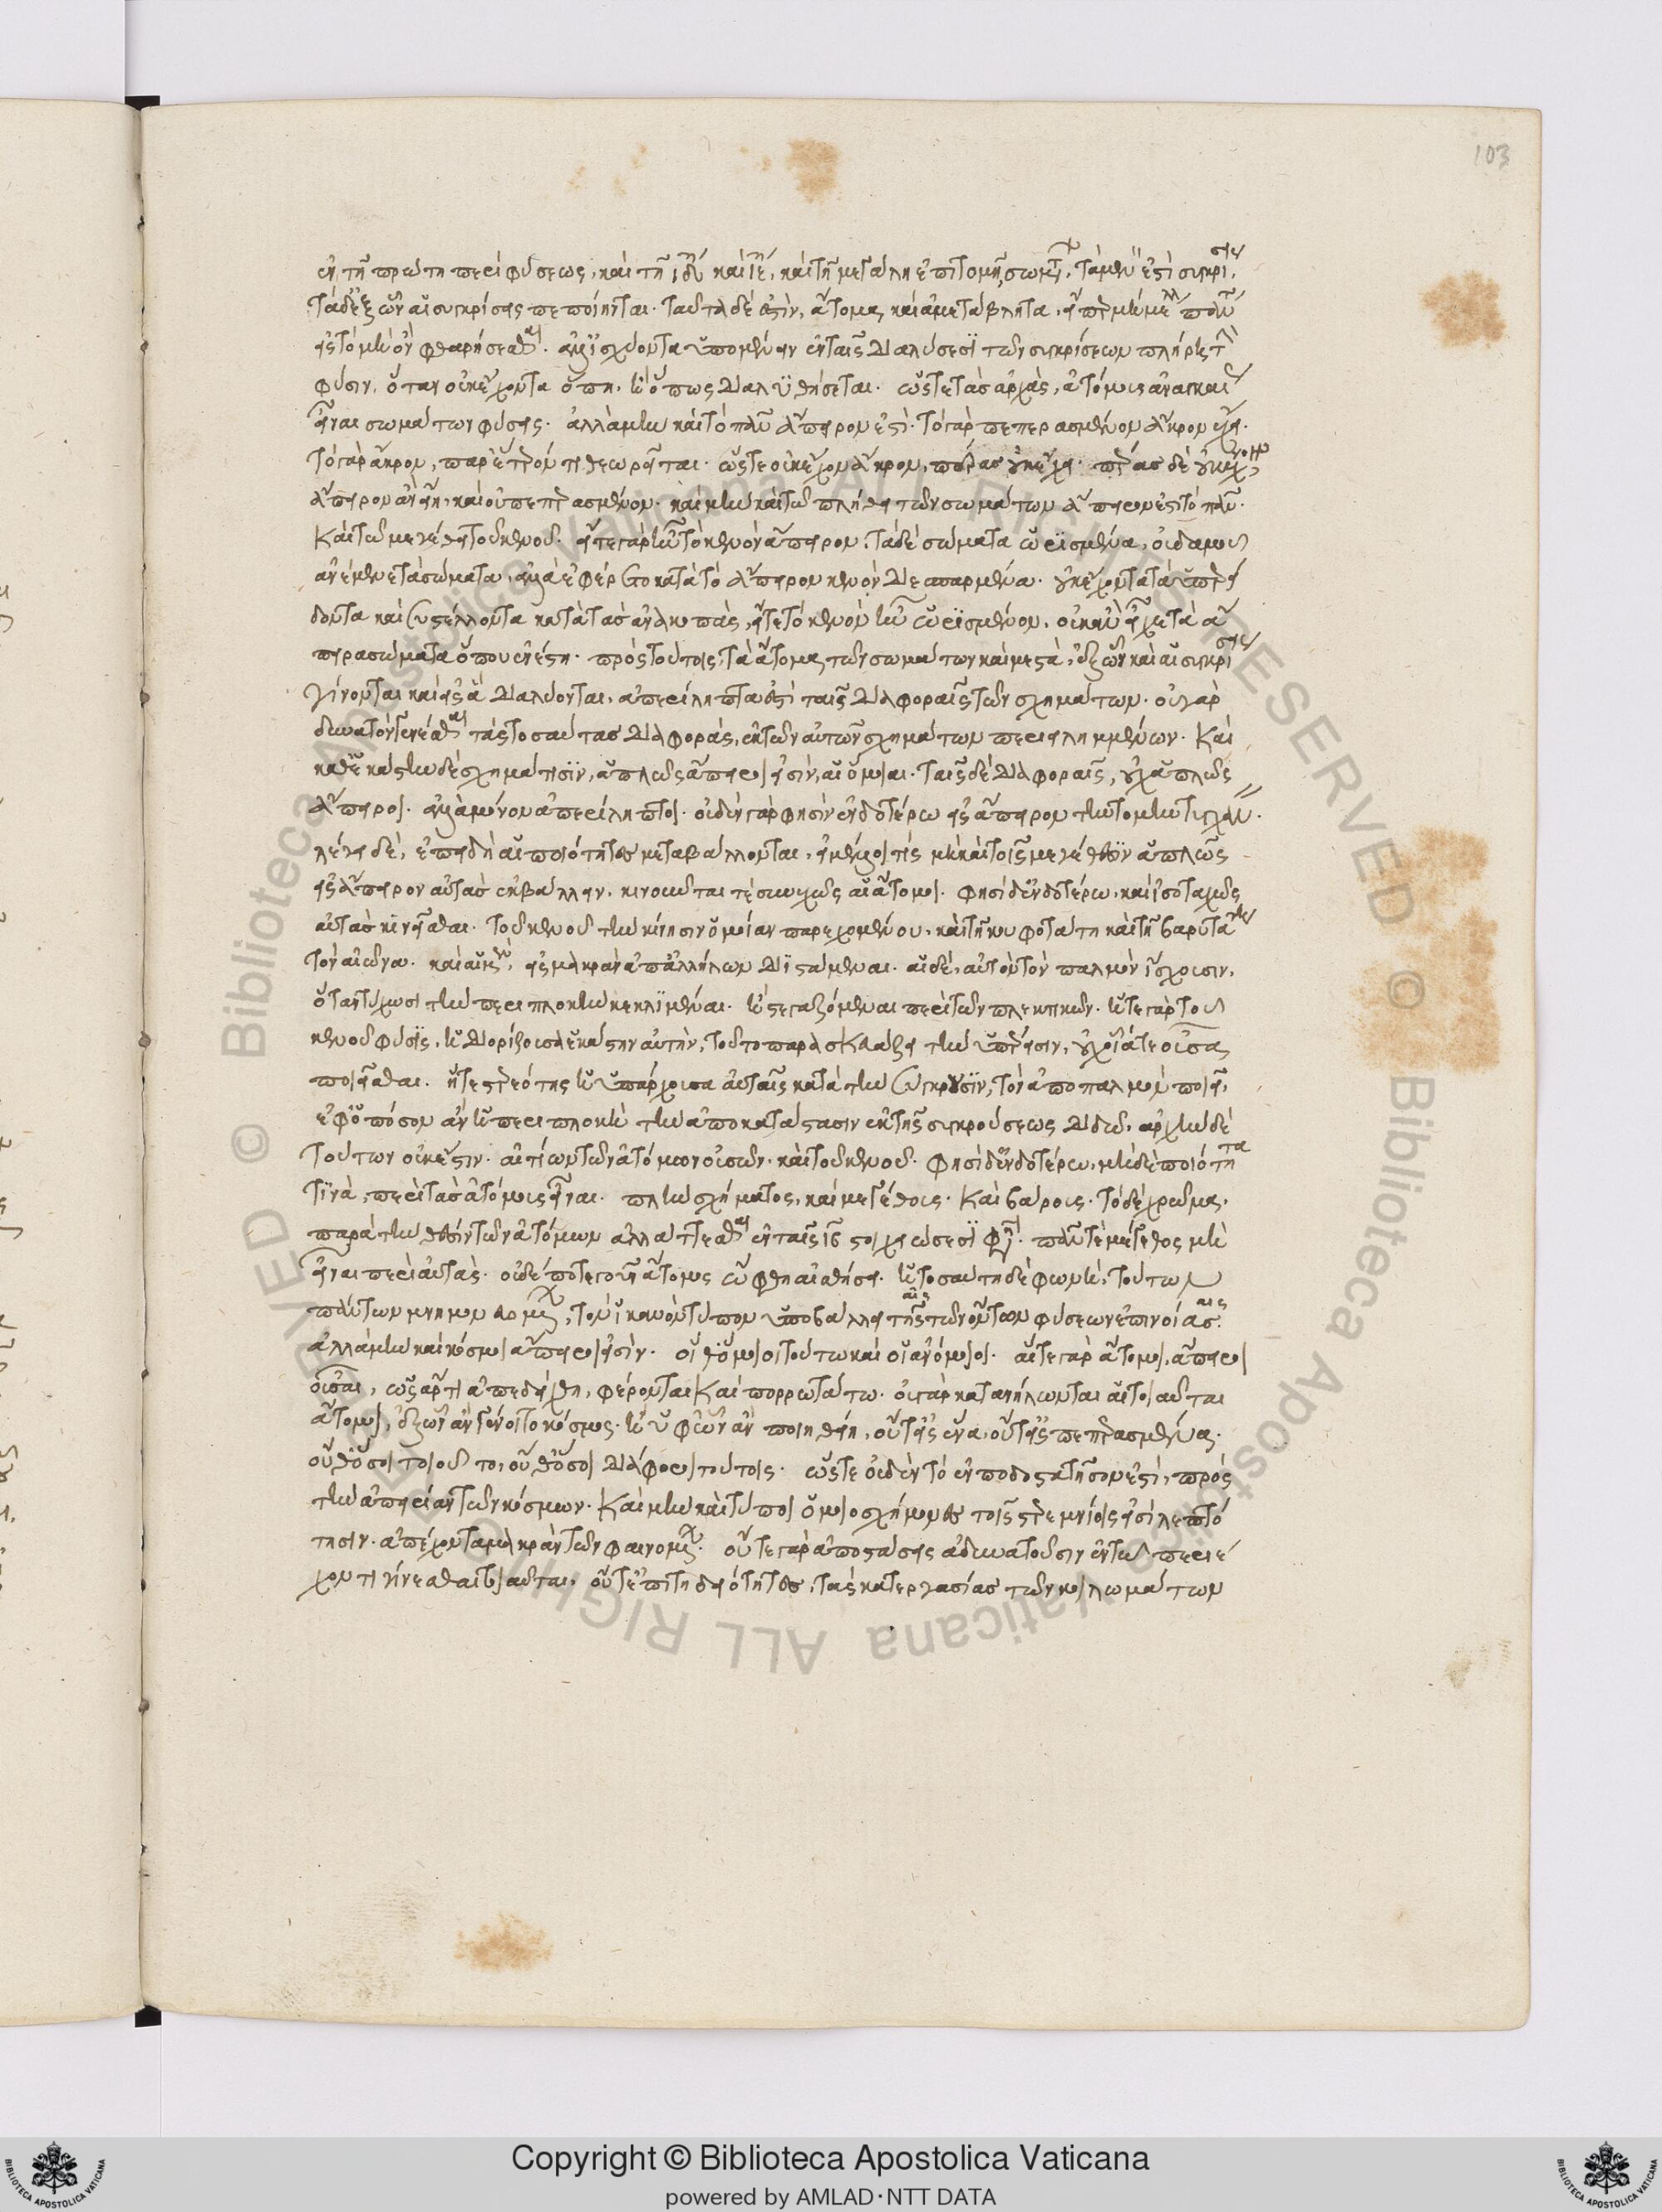 103
ἐν τῇ πρώτῃ περὶ φύσεως, καὶ τῇ ιδ καὶ ιε, καὶ τῇ μεγάλη ἐπιτομῆ, σωμάτ τὰ μέν ἐστι συγκρίσεις
τὰ δ' ἐξ ὧν αἱ συγκρίσεις πεποίηνται. ταῦτα δέ ἐστιν, ἄτομα, καὶ ἀμετάβλητα, εἴπερ μὴ μέλλει πάντα
εἰς τὸ μὴ ὂν φθαρήσεσθαι. ἀλλ' ἰσχύοντα ὑπομένειν ἐν ταῖς διαλύσεσι τῶν συγκρίσεων πλήρης τὴν
φύσιν, ὅταν οὐκ ἔχοντα ὅπη, ἢ ὅπως διαλυθήσεται. ὥστε τὰς ἀρχὰς, ἀτόμους ἀναγκαῖ
εἶναι σωμάτων φύσεις. ἀλλὰ μὴν καὶ τὸ πᾶν ἄπειρον ἐστί. τὸ γὰρ πεπερασμένον ἄκρον ἔχει.
τὸ γὰρ ἄκρον, παρ' ἕτερόν τι θεωρεῖται. ὥστε οὐκ ἔχον ἄκρον, πέρας οὐκ ἔχει. πέρας δὲ οὐκ ἔχον,
ἄπειρον ἂν εἴη, καὶ οὐ πεπερασμένον. καὶ μὴν καὶ τῷ πλήθει τῶν σωμάτων ἄπειρον ἐστὶ τὸ πᾶν.
καὶ τῷ μεγέθει τοῦ κενοῦ. εἴτε γὰρ ἦν τὸ κενὸν ἄπειρον, τὰ δὲ σώματα ὡρισμένα, οὐδαμοῦ
ἂν ἔμενε τὰ σώματα, ἀλλὰ ἐφέρετο κατὰ τὸ ἄπειρον κενὸν διεσπαρμένα. οὐκ ἔχοντα τὰ ὑπερεί
δοντα καὶ στέλλοντα κατὰ τὰς ἀνακοπάς, εἴτε τὸ κενὸν ἦν ὡρισμένον, οὐκ ἂν εἶχε τὰ ἄ
πειρα σώματα ὅπου ἐνέστη. πρὸς τούτοις, τὰ ἄτομα τῶν σωμάτων καὶ μεστὰ, ἐξ ὧν καὶ αἱ συγκρίσεις
γίνονται καὶ εἰς ἃ διαλύονται, ἀπερίληπτά ἐστι ταῖς διαφοραῖς τῶν σχημάτων. οὐ γὰρ
δυνατὸν γενέσθαι τὰς τοσαύτας διαφορὰς, ἐκ τῶν αὐτῶν σχημάτων περιειλημμένων. καὶ
καθ' ἑκάστην δὲ σχημάτισιν, ἁπλῶς ἄπειροι εἰσὶν, αἱ ὅμοιαι. ταῖς δὲ διαφοραῖς, οὐχ ἁπλῶς
ἄπειροι. ἀλλὰ μόνον ἀπερίληπτοι. οὐδὲν γάρ φησιν ἐνδοτέρω εἰς ἄπειρον τὴν τομὴν τυγχάν.
λέγει δὲ, ἐπειδὴ αἱ ποιότητες μεταβάλλονται, εἰ μέλλοι τίς μὴ καὶ τοῖς μεγέθεσιν ἁπλῶς
εἰς ἄπειρον αὐτὰς ἐκβάλλειν, κινοῦνται τὲ συνεχῶς αἱ ἄτομοι. φησὶ δ' ἐνδοτέρω, καὶ ἰσοταχῶς
αὐτὰς κινεῖσθαι. τοῦ κενοῦ τὴν κίνησιν ὁμοίαν παρεχομένου, καὶ τῇ κουφοτάτη καὶ τῇ βαρυτάτη
τὸν αἰῶνα. καὶ αἱ μὲν, εἰς μακρὰν ἀπ' ἀλλήλων διϊστάμεναι. αἱ δὲ, αὐτοῦ τὸν παλμὸν ἴσχουσιν,
ὅταν τύχωσι τὴν περιπλοκὴν κεκλιμέναι. ἢ στεγαζόμεναι περὶ τῶν πλεκτικῶν. ἥ τε γὰρ τοῦ
κενοῦ φύσις, ἡ διορίζουσα ἑκάστην αὐτὴν, τοῦτο παρασκευάζει τὴν ὑπέρεισιν, οὐχ οἵα τε οὖσα
ποιεῖσθαι. ἥ τε στερεότης ἡ ὑπάρχουσα αὐταῖς κατὰ τὴν σύγκρουσιν, τὸν ἀποπαλμὸν ποιεῖ,
ἐφ' ὁπόσον ἂν ἡ περιπλοκὴ τὴν ἀποκατάστασιν ἐκ τῆς συγκρούσεως διδῶ. ἀρχὴ δὲ
τούτων οὐκ ἔστιν. αἰτίων τῶν ἀτόμων οὐσῶν. καὶ τοῦ κενοῦ. φησὶ δ' ἐνδοτέρω, μηδὲ ποιότητα
τινὰ, περὶ τὰς ἀτόμους εἶναι. πλὴν σχήματος, καὶ μεγέθους. καὶ βάρους. τὸ δὲ χρῶμα,
παρὰ τὴν θέσιν τῶν ἀτόμων ἀλλάττεσθαι ἐν ταῖς ιβ στοιχειώσεσί φησι. πᾶν τε μέγεθος μὴ
εἶναι περὶ αὐτάς. οὐδέποτε γοῦν ἄτομος ὤφθη αἰσθήσει. ἡ τοσαύτη δὲ φωνὴ, τούτων
πάντων μνημονευομέ, τὸν ἱκανὸν τύπον ὑποβάλλει ταῖς τῶν ὄντων φύσεων ἐπινοίαις.
ἀλλὰ μὴν καὶ κόσμοι ἄπειροι εἰσὶν. οἵ θ' ὅμοιοι τούτω καὶ οἱ ἀνόμοιοι. αἵ τε γὰρ ἄτομοι, ἄπειροι
οὖσαι, ὡς ἄρτι ἀπεδείχθη, φέρονται καὶ πορρωτάτω. οὐ γὰρ κατανήλωνται αἱ τοιαῦται
ἄτομοι, ἐξ ὧν ἂν γένοιτο κόσμος. ἢ ὑφ' ὧν ἂν ποιηθείη, οὔτ' εἰς ἕνα, οὔτ' εἰς πεπερασμένας.
οὔθ' ὅσοι τοιοῦτοι, οὔθ' ὅσοι διάφοροι τούτοις. ὥστε οὐδὲν τὸ ἐμποδοστατῆσον ἐστὶ, πρὸς
τὴν ἀπειρίαν τῶν κόσμων. καὶ μὴν καὶ τύποι ὁμοιοσχήμονες τοῖς στερεμνίοις εἰσὶ λεπτό
τησιν. ἀπέχοντα μακρὰν τῶν φαινομέν. οὔτε γὰρ ἀποστάσεις ἀδυνατοῦσιν ἐν τῷ περιέ
χοντι γίνεσθαι τοιαῦται, οὔτ' ἐπιτηδειότητες, τὰς κατεργασίας τῶν κοιλωμάτων